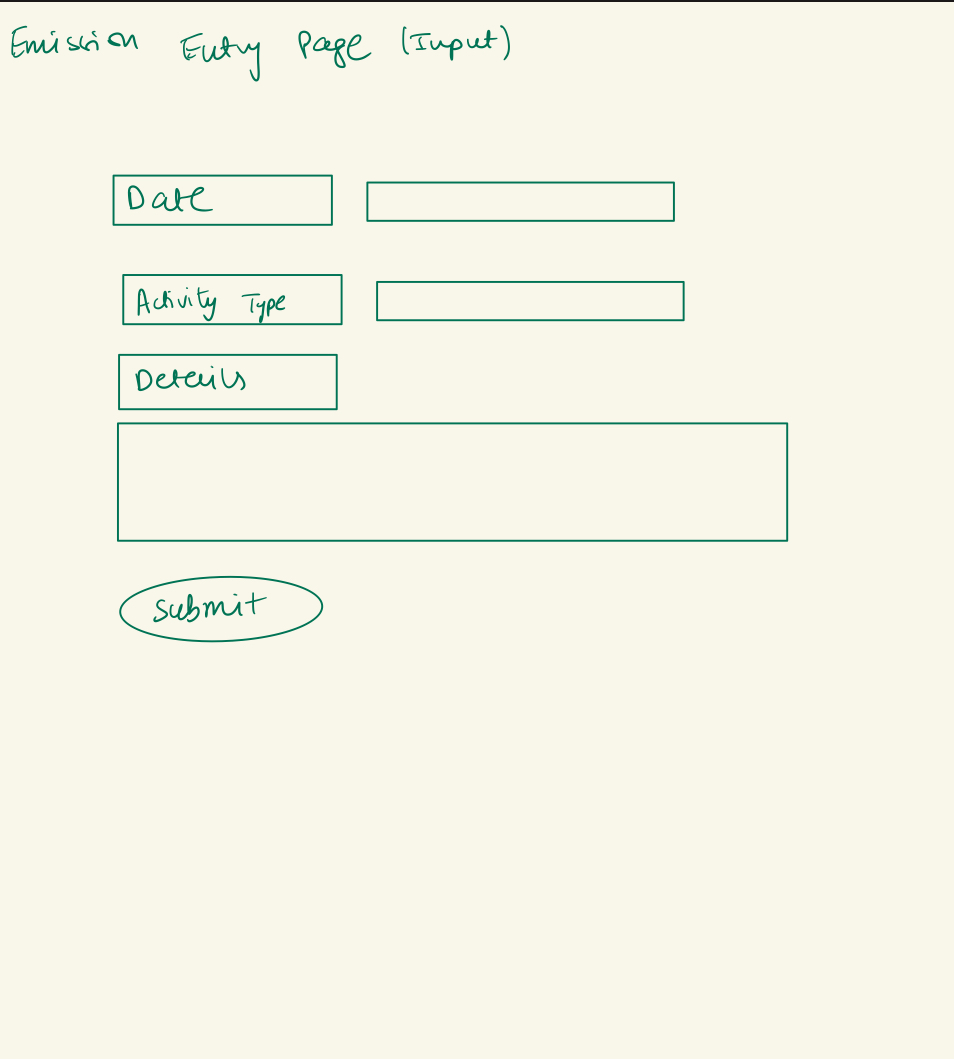 Emission Entry Page (Input)
Date
Activity Type
Details
Submit